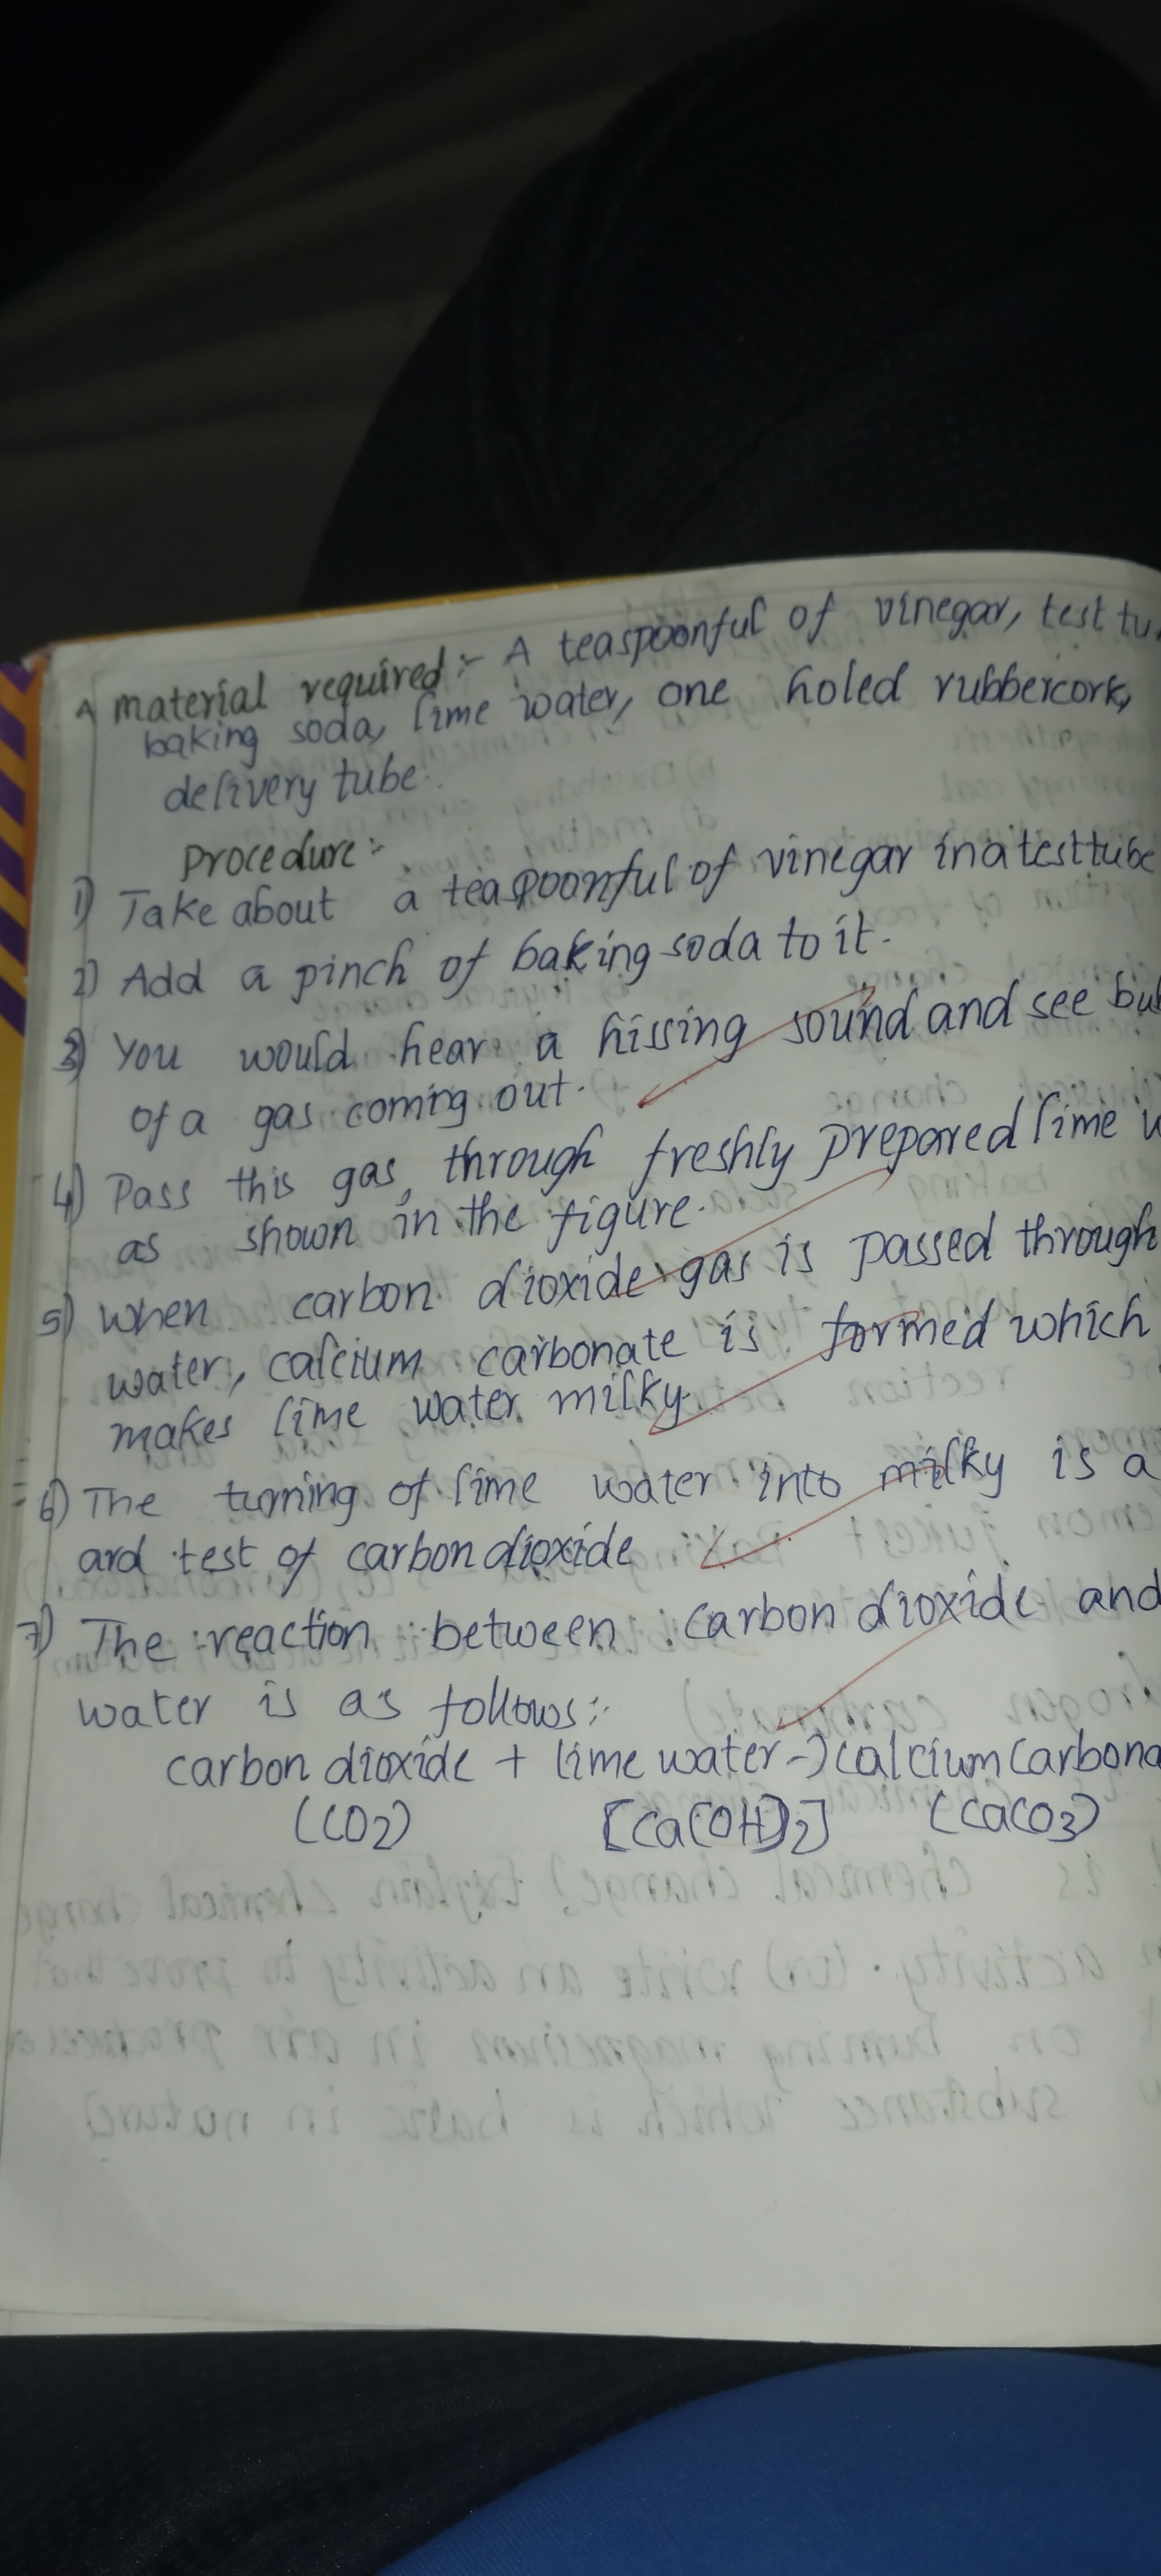 A material required:- A teaspoonful of vinegar, test tu
baking soda, lime water, one holed rubbercork,
delivery tube.
Procedure:-
1) Take about a teaspoonful of vinegar in a test tube
2) Add a pinch of baking soda to it.
3) You would hear a hissing sound and see bub
of a gas coming out.
4) Pass this gas, through freshly prepared lime w
as shown in the figure.
5) When carbon dioxide gas is passed through
water, calcium carbonate is formed which
makes lime water milky.
6) The turning of lime water into milky is a
ard test of carbon dioxide
7) The reaction between carbon dioxide and
water is as follows:-
carbon dioxide + lime water → calcium carbona
(CO2) [Ca(OH)2] (CaCO3)